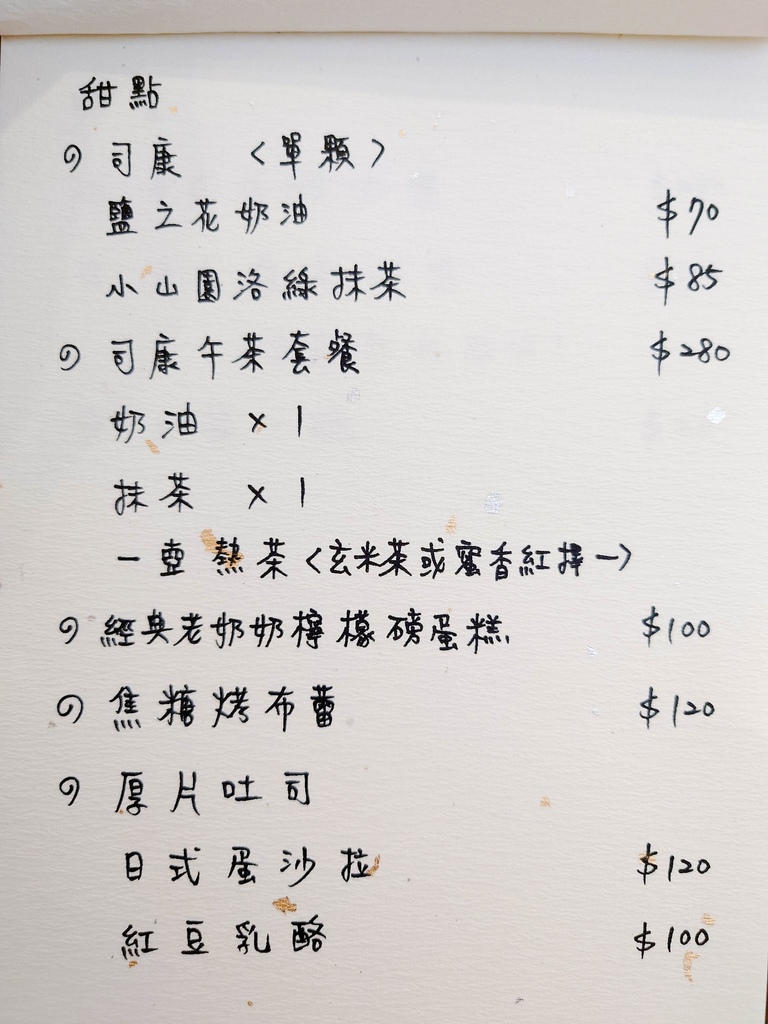 甜點
司康 〈單顆〉
鹽之花奶油 $70
小山園洛綠抹茶 $85
司康午茶套餐 $280
奶油 x 1
抹茶 x 1
一壺 熱茶〈玄米茶或蜜香紅擇一〉
經典老奶奶檸檬磅蛋糕 $100
焦糖烤布蕾 $120
厚片吐司
日式蛋沙拉 $120
紅豆乳酪 $100